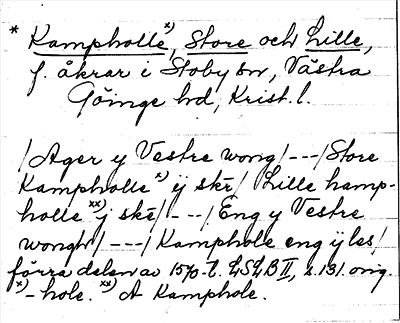 * Kampholle x), Store och Lille,
f. åkrar i Stoby sn, Västra
Göinge hd, Krist. l.
/Ager y Vestre wong/---/Store
Kampholle x) ÿ skē/ Lille hamp-
holle xx) j skē/---/Eng y Vestre
wongh/---/Kamphole eng ÿ las/
förra delen av 1570-t. LSLB II, s. 131. orig.
x) -hole. xx) A Kamphole.